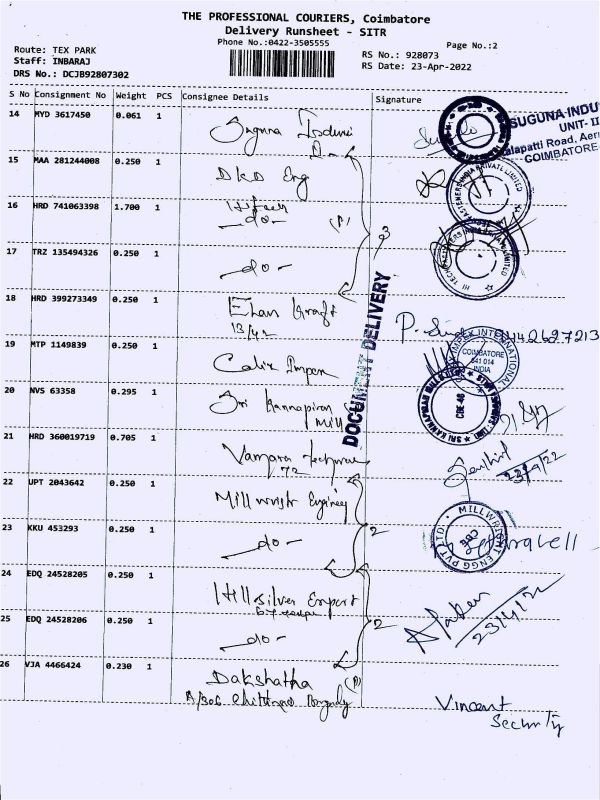 THE PROFESSIONAL COURIERS, Coimbatore
Delivery Runsheet - SITR
Phone No.:0422-3505555
Page No.:2
Route: TEX PARK
Staff: INBARAJ
DRS No.: DCJB92807302
RS No.: 928073
RS Date: 23-Apr-2022
S No Consignment No Weight PCS Consignee Details Signature
14 MYD 3617450 0.061 1 Suguna
SUGUNA INDU
UNIT- II
alapatti Road, Aer
COIMBATORE
15 MAA 281244008 0.250 1 DKD Eng
16 HRD 741063398 1.700 1 Hitech
-do-
17 TRZ 135494326 0.250 1 -do-
3
HI TECH FASTENERS INDIA PRIVATE LIMITED
18 HRD 399273349 0.250 1
13/42
DOCUMENT DELIVERY
19 MTP 1149839 0.250 1 Impex
IMPEX INTERNATIONAL
COIMBATORE
641 014
INDIA
20 NVS 63358 0.295 1 Sri Kannapiran
Mill
SRI KANNAPIRAN MILLS
CBE-46
21 HRD 360019719 0.705 1
72
22 UPT 2043642 0.250 1 Millwright
23 KKU 453293 0.250 1 -do-
2
MILLWRIGHT ENGG PVT LTD.
CBE
24 EDQ 24528205 0.250 1 Hillsilver Export
25 EDQ 24528206 0.250 1 -do-
2
23/4/22
26 VJA 4466424 0.230 1 Dakshatha
A/306
Vincent
Security